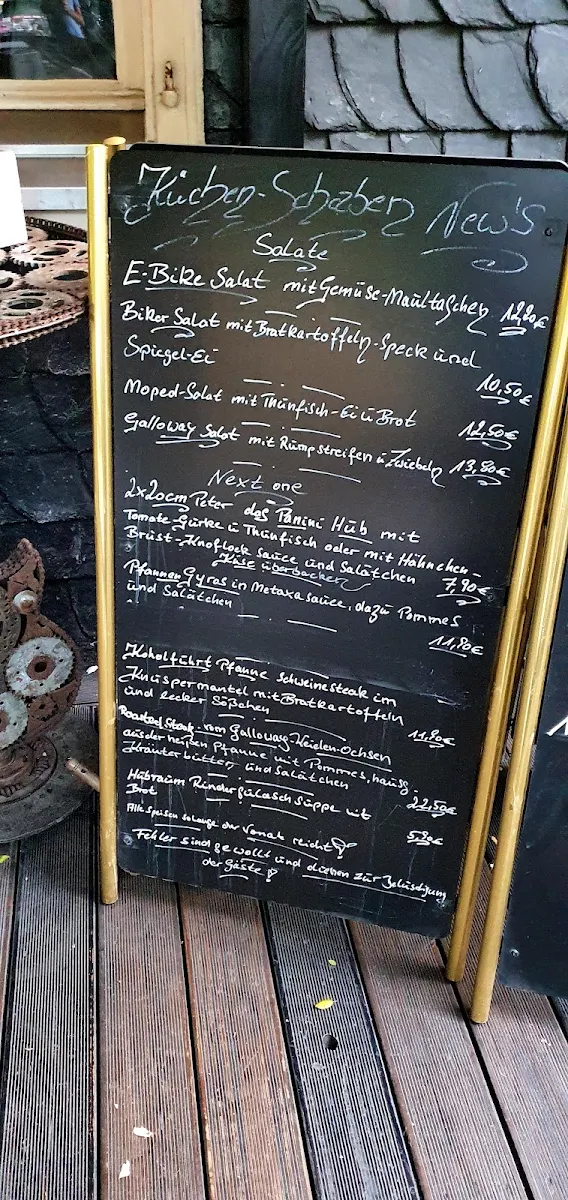 Küchen-Schaben New'S
Salate
E-Bike Salat mit Gemüse-Maultaschen 12,20€
Biker Salat mit Bratkartoffeln-Speck und
Spiegel-Ei
10,50€
Moped-Salat mit Thunfisch-Ei u Brot
12,50€
Galloway Salat mit Rumpstreifen u Zwiebeln 13,80€
Next one
2x20cm Peter das Panini Hub mit
Tomate-Gurke u Thunfisch oder mit Hähnchen-
Brust-Knoflock sauce und Salätchen 7,90€
Käse überbacken
Pfannen Gyros in Metaxasauce, dazu Pommes
und Salätchen
11,80€
Koholführt Pfanne Schweinesteak im
Knuspermantel mit Bratkartoffeln
und lecker Sößchen
11,80€
Roasted Steak vom Galloway Weiden-Ochsen
aus der heißen Pfanne mit Pommes, hausg.
Kräuterbutter und Salätchen
22,50€
Hubraum Rindergulasch Suppe mit
Brot
5,20€
Alle Speisen solange der Vorrat reicht
Fehler sind gewollt und dienen zur Belustigung
der Gäste